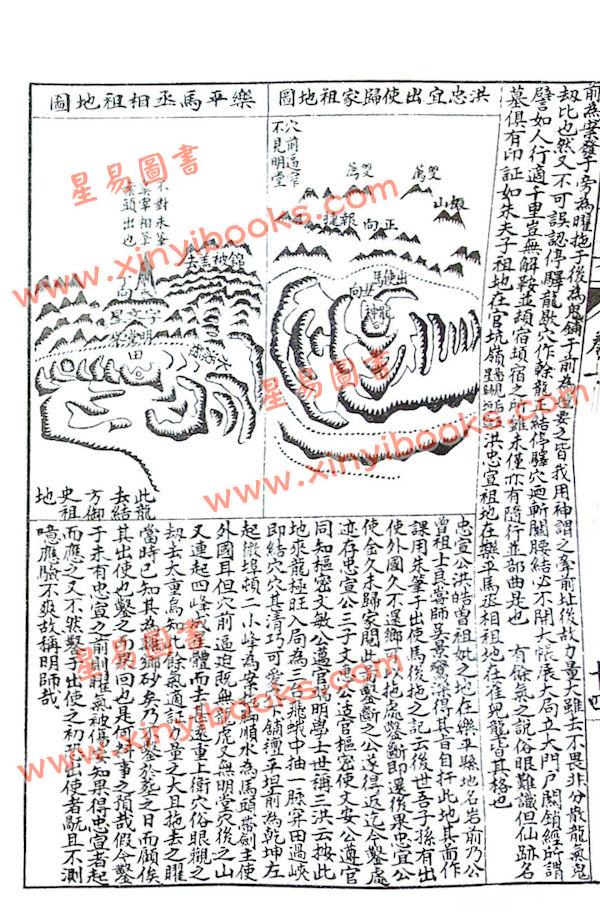 前為案發于旁為曜拖于後為鬼鋪于前為氊要之皆我用神謂之牽前址後故力量大雖去不畏非分散龍氣鬼
劫比也然又不可誤認停驛龍歇穴作餘龍正結停驛穴過斬關腰結必不開大帳展大局立大門戶關鎖經所謂
譬如人行適千里豈無解鞍並頓宿頓宿之所雖未僅亦有隨行並部曲是也 有餘氣之說俗眼難識但仙跡名
墓俱有印証如朱夫子祖地在官坑嶺洪忠宣祖地在樂平馬丞相祖地在雀兒壟皆其格也
洪忠宜出使歸家祖地圖
穴前逼窄
不見明堂
雙薦
雙薦
正向
報捷
出使馬
樂平馬丞相祖地圖
不對朱筆
丁向
文星
明堂
田
此龍
去結
方御
史祖
地
忠宣公洪皓曾祖妣之地在樂平縣地名岩前乃公
曾祖士良嘗師吳景鸞深得其旨自扦此地其而作
課用朱筆于出使馬後拖之記云後世吾子孫有出
使外國久不還鄉可以拖處鑿斷即還後果忠宜公
使金久未歸家聞此鑿斷之公遂得返迄今鑿處
亦存忠宣公三子文惠公适官樞密使文安公遵官
同知樞密文敏公邁官端明學士世稱三洪云按此
地來龍極旺入局為三台飛蛾中抽一脉穿田過峽
即結穴穴其清巧可愛下鋪禋平坦前為乾坤左
起微埠頓二小峰為案御順水為馬頭帶劍主使
外國耳但穴前逼迫既無虎又無明堂穴後之山
又連起四峰成體而去高遠重上衛穴俗眼觀之
劫去大重烏知餘氣適証力量之大且拖去之曜
當時已知其為離鄉砂矣乃不鑿於葬之日而顧俟
其出使也鑿之而果回也是何前事之預哉假令鑿
于未有忠宣之前則曜氣被傷安知果得忠宣者起
而應之又不然鑿于出使之初出使者蹶且不測
噫應驗不爽故稱明師哉
星易圖書
www.xinyibooks.com
星易圖書
www.xinyibooks.com
星易圖書
www.xinyibooks.com